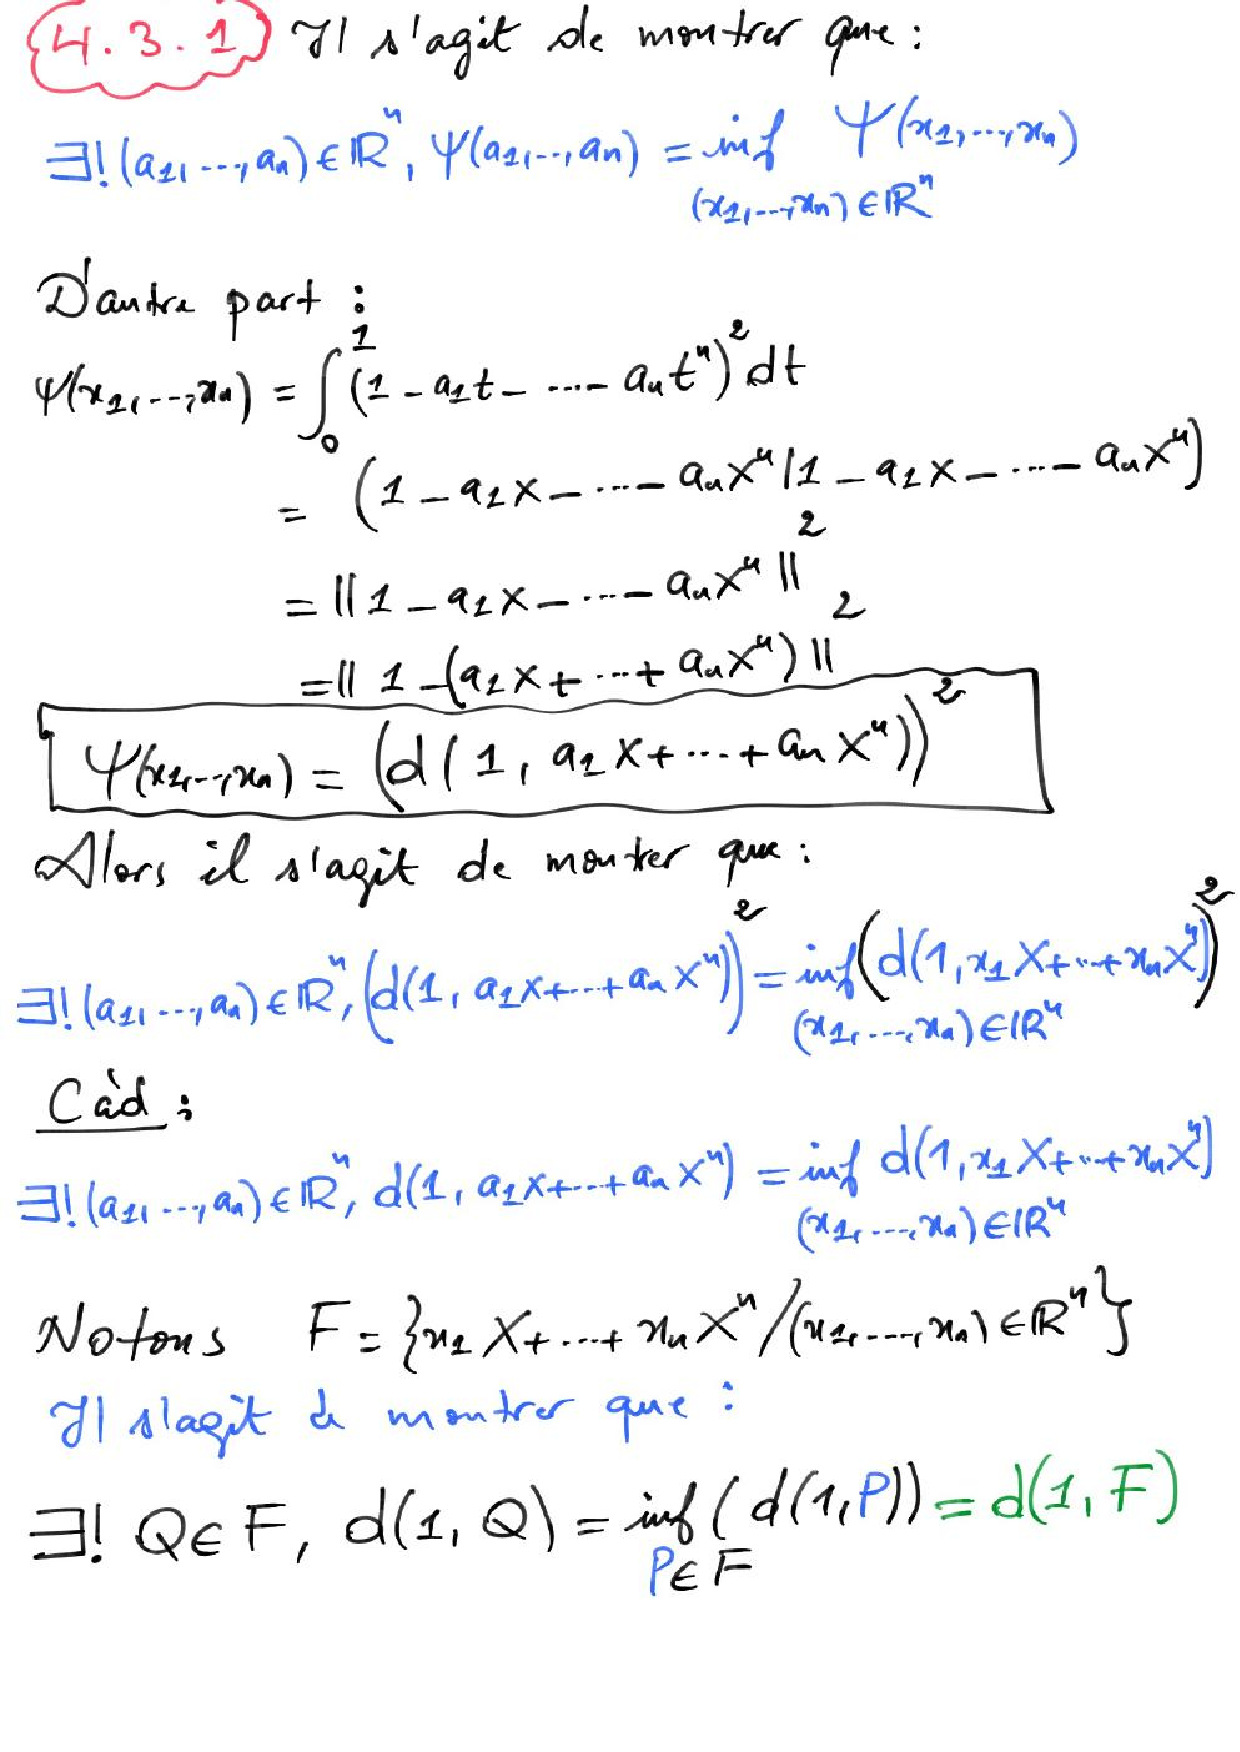 4.3.1 Il s'agit de montrer que :
∃! (a₁, ..., aₙ) ∈ ℝⁿ, Ψ(a₁, .., aₙ) = inf Ψ(x₁, ..., xₙ)
(x₁, ..., xₙ) ∈ ℝⁿ
D'autre part :
Ψ(x₁, .., xₙ) = ∫₀¹ (1 - a₁t - .... - aₙtⁿ)² dt
= (1 - a₁X - .... - aₙXⁿ | 1 - a₁X - .... - aₙXⁿ)
= || 1 - a₁X - .... - aₙXⁿ ||²
= || 1 - (a₁X + ... + aₙXⁿ) ||²
Ψ(x₁, .., xₙ) = (d(1, a₁X + ... + aₙXⁿ))²
Alors il s'agit de montrer que :
∃! (a₁, ..., aₙ) ∈ ℝⁿ, (d(1, a₁X + ... + aₙXⁿ))² = inf (d(1, x₁X + ... + xₙXⁿ))²
(x₁, ..., xₙ) ∈ ℝⁿ
Càd :
∃! (a₁, ..., aₙ) ∈ ℝⁿ, d(1, a₁X + ... + aₙXⁿ) = inf d(1, x₁X + ... + xₙXⁿ)
(x₁, ..., xₙ) ∈ ℝⁿ
Notons F = {x₁X + ... + xₙXⁿ / (x₁, ..., xₙ) ∈ ℝⁿ}
Il s'agit de montrer que :
∃! Q ∈ F, d(1, Q) = inf (d(1, P)) = d(1, F)
P ∈ F